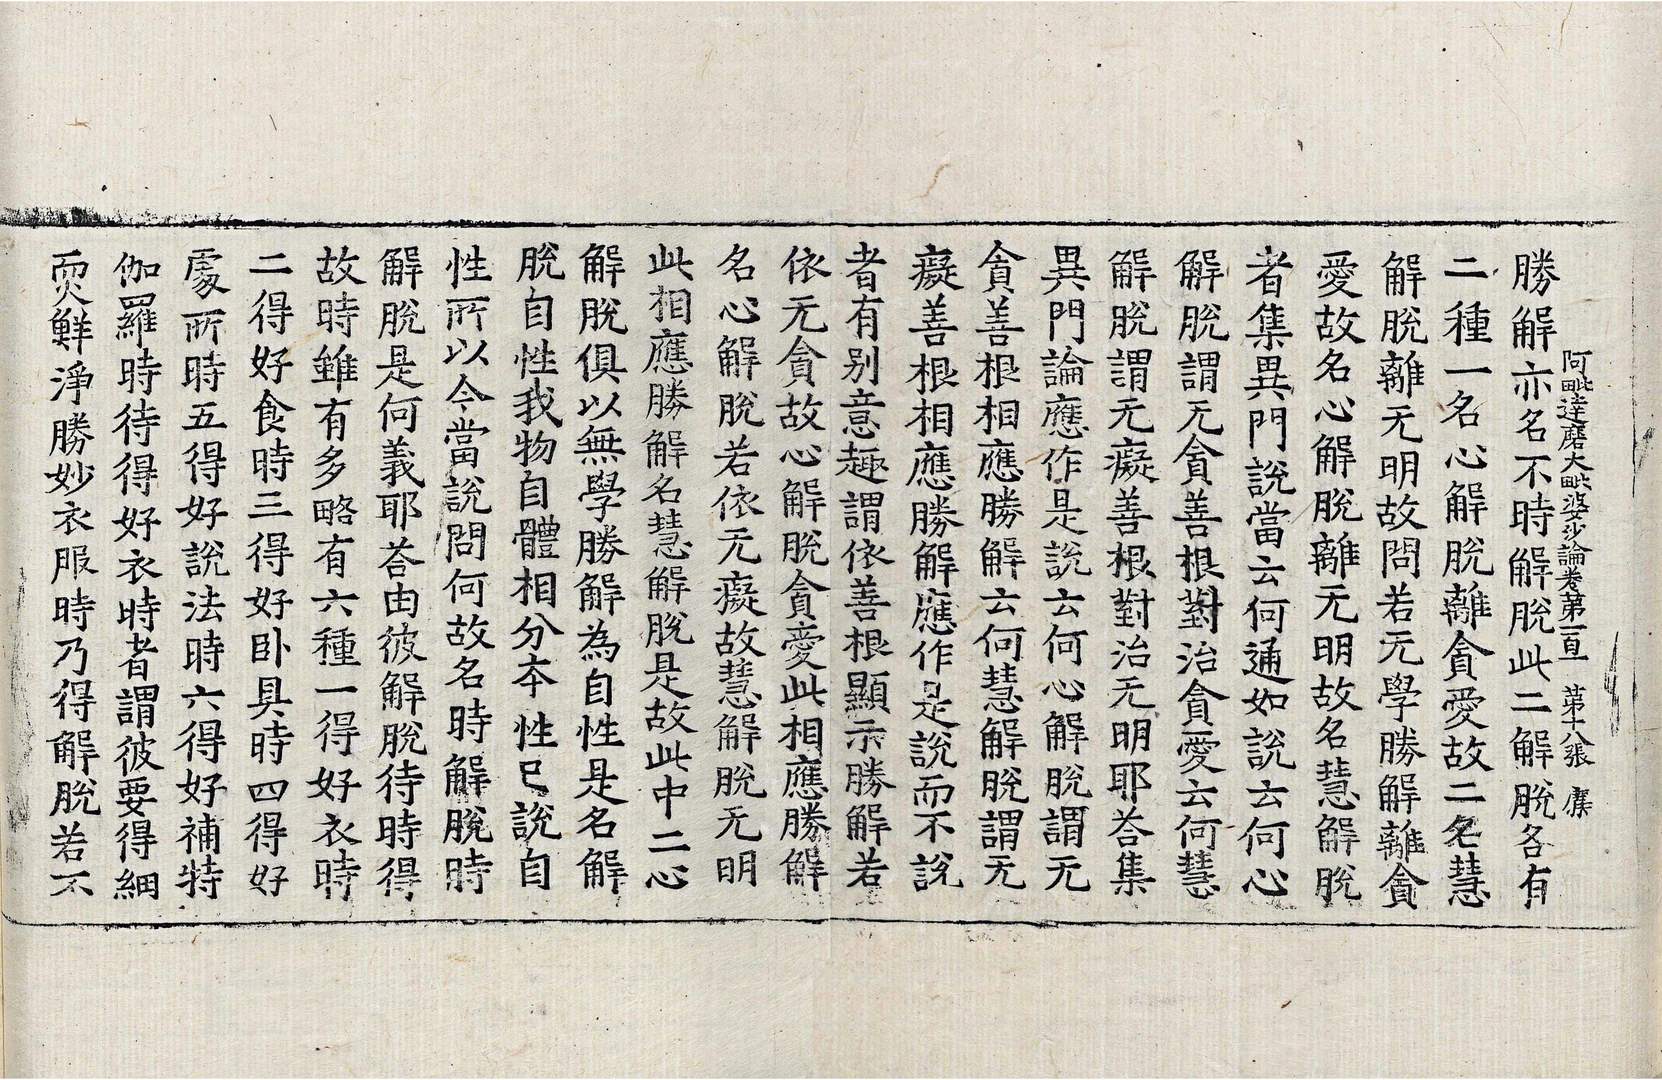 阿毗達磨大毗婆沙論卷第一百一 第十八張 廉
勝解亦名不時解脫此二解脫各有
二種一名心解脫離貪愛故二名慧
解脫離无明故問若无學勝解離貪
愛故名心解脫離无明故名慧解脫
者集異門說當云何通如說云何心
解脫謂无貪善根對治貪愛云何慧
解脫謂无癡善根對治无明耶答集
異門論應作是說云何心解脫謂无
貪善根相應勝解云何慧解脫謂无
癡善根相應勝解應作是說而不說
者有别意趣謂依善根顯示勝解若
依无貪故心解脫貪愛此相應勝解
名心解脫若依无癡故慧解脫无明
此相應勝解名慧解脫是故此中二心
解脫俱以無學勝解為自性是名解
脫自性我物自體相分本性已說自
性所以今當說問何故名時解脫時
解脫是何義耶答由彼解脫待時得
故時雖有多略有六種一得好衣時
二得好食時三得好臥具時四得好
處所時五得好說法時六得好補特
伽羅時待得好衣時者謂彼要得細
耎鮮淨勝妙衣服時乃得解脫若不